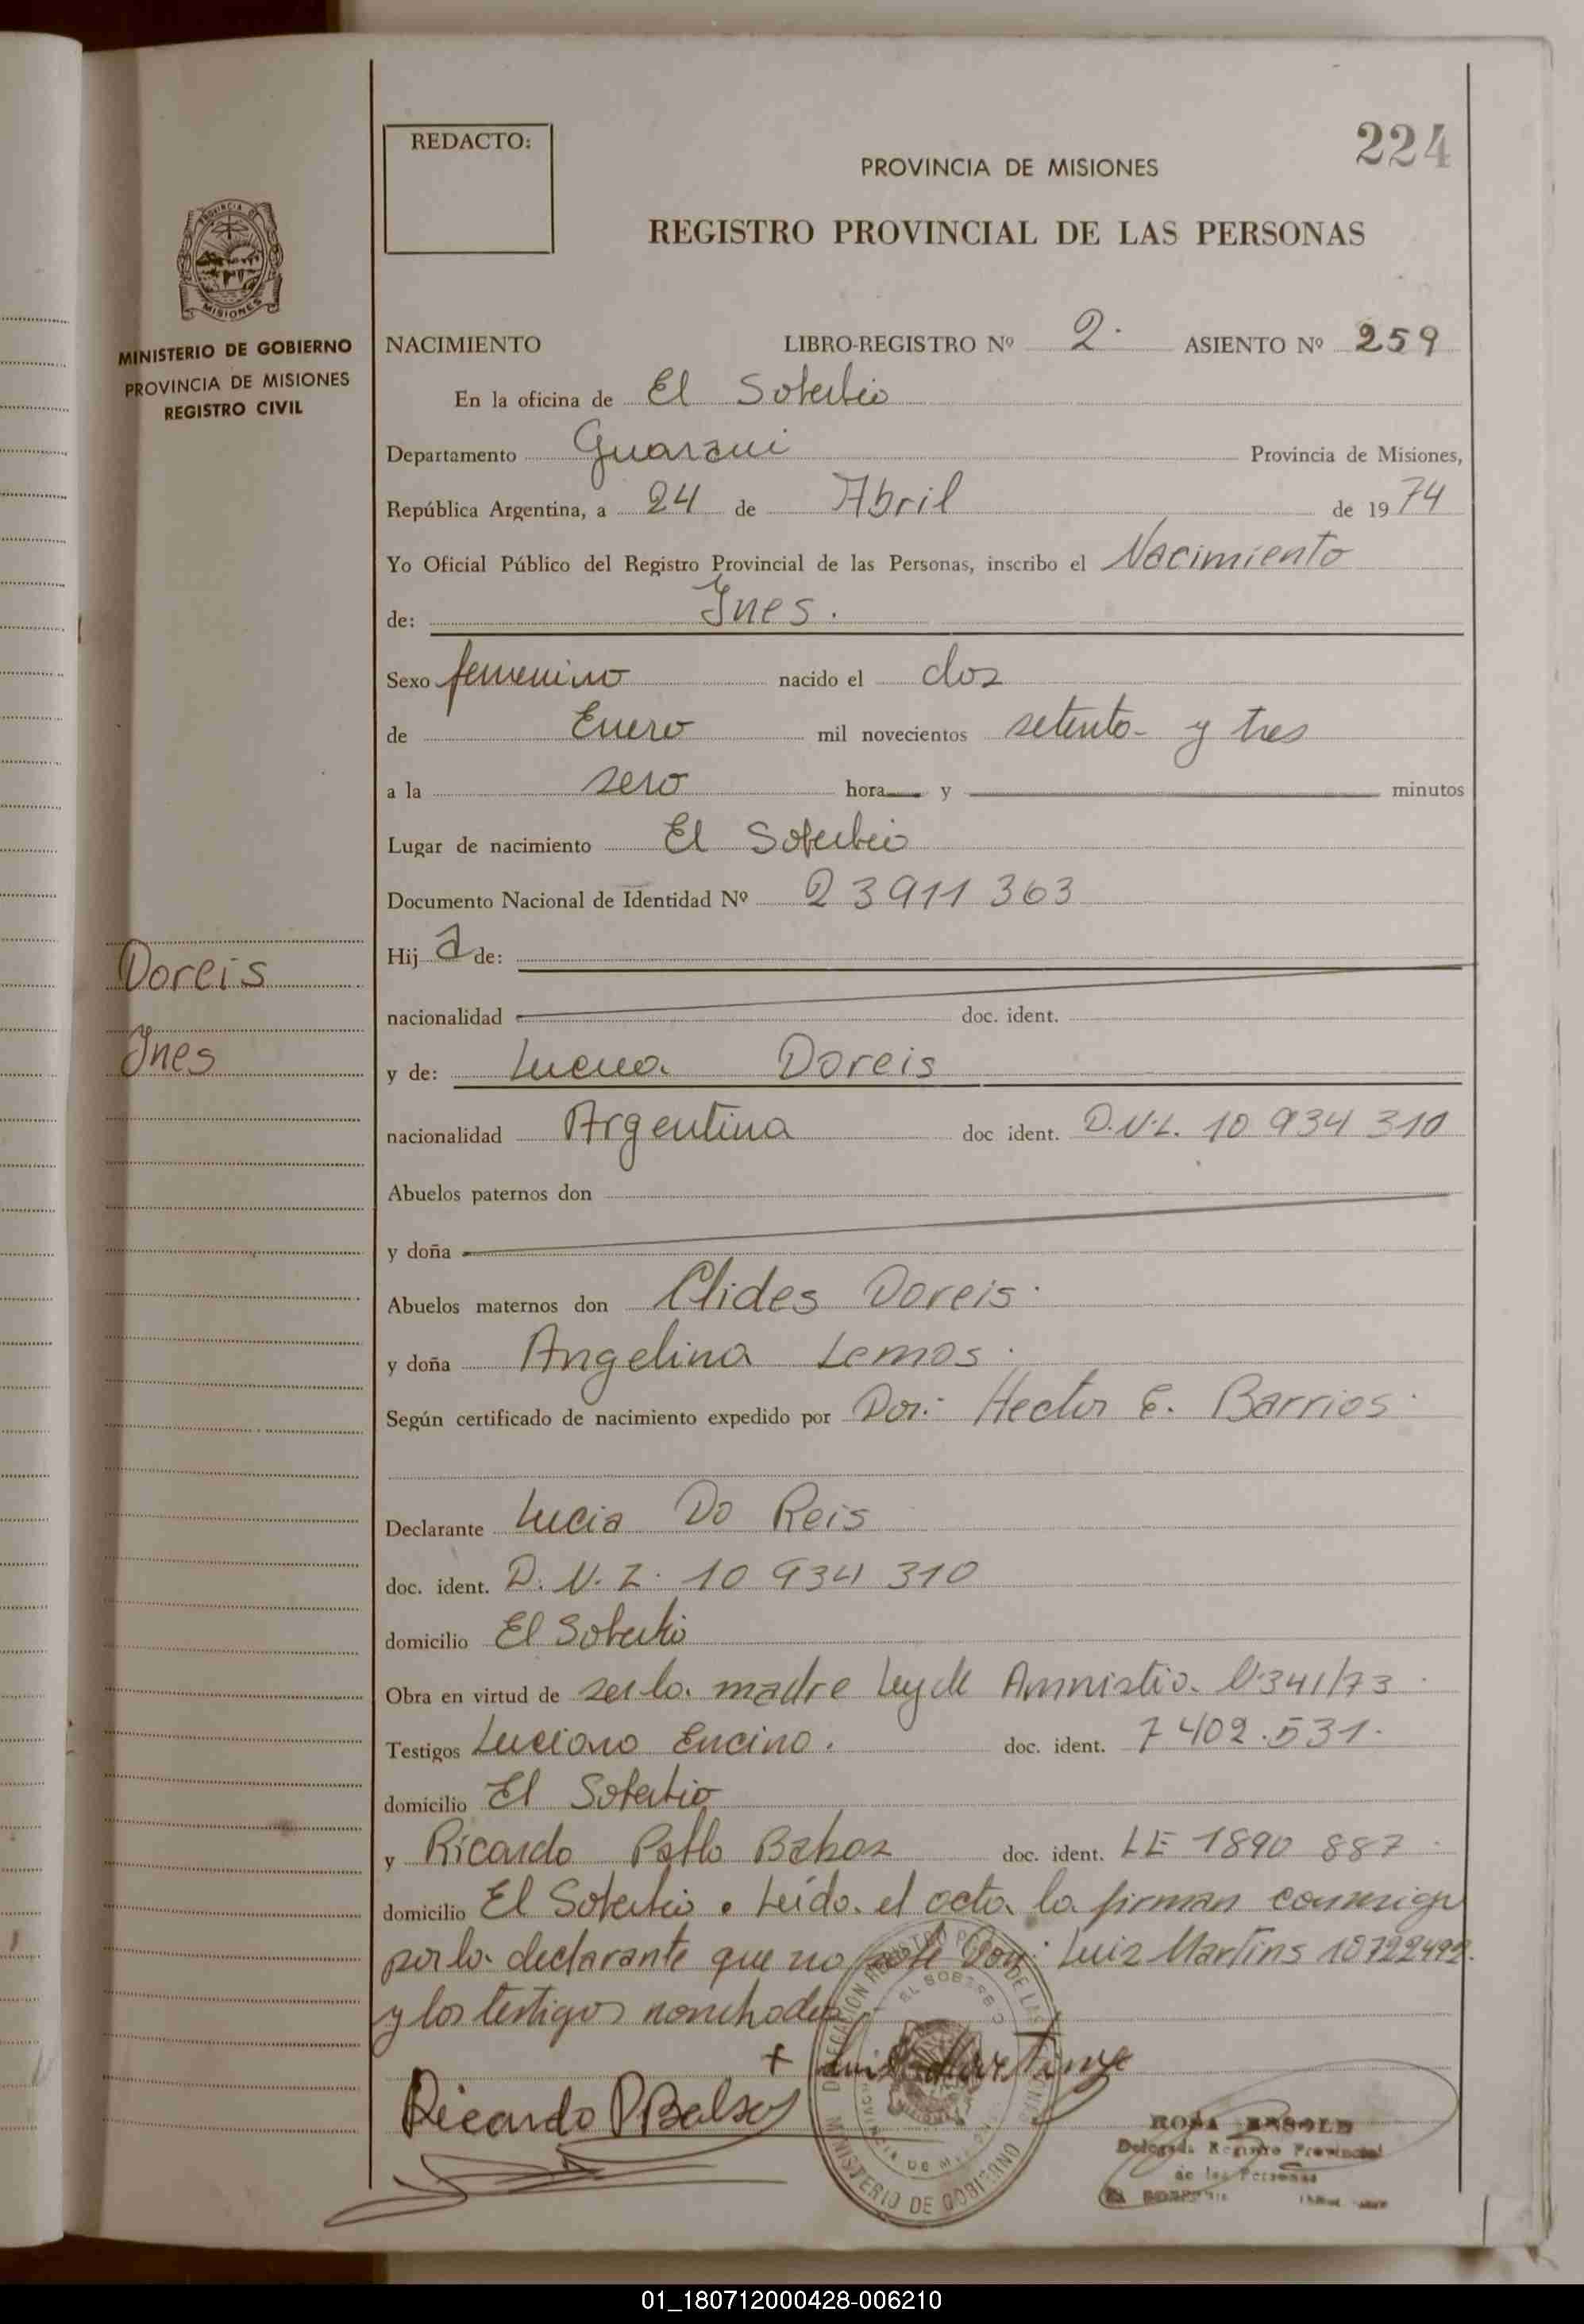 REDACTO:
224
PROVINCIA DE MISIONES
REGISTRO PROVINCIAL DE LAS PERSONAS
MINISTERIO DE GOBIERNO
PROVINCIA DE MISIONES
REGISTRO CIVIL
NACIMIENTO LIBRO-REGISTRO Nº 2 ASIENTO Nº 259
En la oficina de El Soberbio
Departamento Guarani Provincia de Misiones,
República Argentina, a 24 de Abril de 1974
Yo Oficial Público del Registro Provincial de las Personas, inscribo el Nacimiento
de: Ines.
Sexo femenino nacido el dos
de Enero mil novecientos setenta y tres
a la sero hora y minutos
Lugar de nacimiento El Soberbio
Documento Nacional de Identidad Nº 23911363
Hija de:
Doreis
nacionalidad doc. ident.
Ines
y de: Doreis
nacionalidad Argentina doc ident. D.N.I. 10 934 310
Abuelos paternos don
y doña
Abuelos maternos don Clides Doreis
y doña Angelina Lemos
Según certificado de nacimiento expedido por Dor: Hector E. Barrios
Declarante Lucia Do Reis
doc. ident. D.N.I. 10 934 310
domicilio El Soberbio
Obra en virtud de ser la madre Ley de Amnistia N341/73
Testigos Luciano Encina. doc. ident. 7402.531.
domicilio El Soberbio
y Ricardo Pablo doc. ident. LE 1890 887
domicilio El Soberbio. Leida el acta la firman conmigo
por la declarante que no sabe Don: Luiz Martins 10722492.
y los testigos
+ Luis
Ricardo P
DIRECCION REGISTRO PROVINCIAL DE LAS PERSONAS
EL SOBERBIO
PROVINCIA DE MISIONES
MINISTERIO DE GOBIERNO
ROSA
Delegada Registro Provincial
de las Personas
01_180712000428-006210